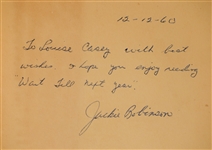 12-12-60
To Louise Casey with best
wishes & hope you enjoy reading
Wait Till Next Year.
Jackie Robinson